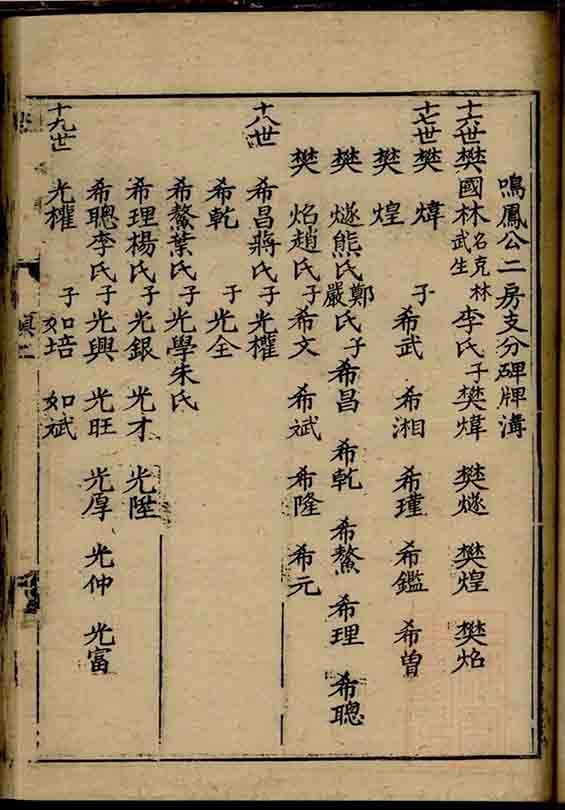 鳴鳳公二房支分碑牌溝
十六世樊國林名克林武生李氏子樊煒 樊燧 樊煌 樊焰
十七世樊煒 子希武 希湘 希瑾 希鑑 希曾
樊煌
樊燧熊氏鄭氏嚴氏子希昌 希乾 希鰲 希理 希聰
樊焰趙氏子希文 希斌 希隆 希元
十八世 希昌蔣氏子光權
希乾 子光全
希鰲葉氏子光學朱氏
希理楊氏子光銀 光才 光陞
希聰李氏子光興 光旺 光厚 光仲 光富
十九世 光權 子如培 如斌